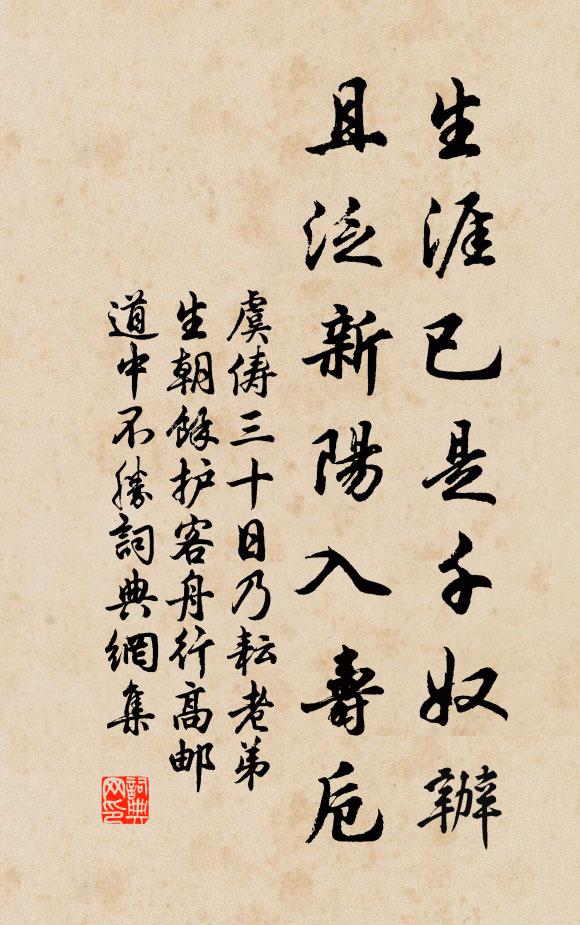 生涯已是千奴辦
且泛新陽入壽卮
虞儔三十日乃耘老弟
生朝餘护客舟行高邮
道中不勝詞典網集
詞典网印